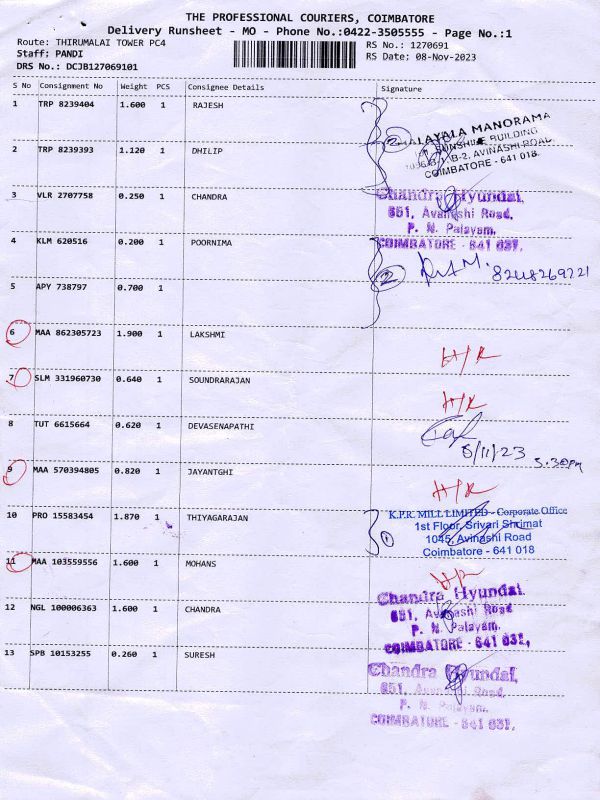 THE PROFESSIONAL COURIERS, COIMBATORE
Delivery Runsheet - MO - Phone No.:0422-3505555 - Page No.:1
Route: THIRUMALAI TOWER PC4
RS No.: 1270691
Staff: PANDI
RS Date: 08-Nov-2023
DRS No.: DCJB127069101
S No Consignment No Weight PCS Consignee Details Signature
1 TRP 8239404 1.600 1 RAJESH
2 MALAYALA MANORAMA
SUNSHINE BUILDING
2 TRP 8239393 1.120 1 DHILIP
B-2, AVINASHI ROAD
COIMBATORE - 641 018.
3 VLR 2707758 0.250 1 CHANDRA
Chandra Hyundai,
651, Avanashi Road,
P. N. Palayam,
4 KLM 620516 0.200 1 POORNIMA
COIMBATORE - 641 037.
2
5 APY 738797 0.700 1
6 MAA 862305723 1.900 1 LAKSHMI
H/R
7 SLM 331960730 0.640 1 SOUNDRARAJAN
H/R
8 TUT 6615664 0.620 1 DEVASENAPATHI
8/11/23
5.30pm
9 MAA 570394805 0.820 1 JAYANTGHI
H/R
10 PRO 15583454 1.870 1 THIYAGARAJAN
K.P.R. MILL LIMITED - Corporate Office
1st Floor, Srivari Shrimat
1 1045, Avinashi Road
Coimbatore - 641 018
11 MAA 103559556 1.600 1 MOHANS
H/R
Chandra Hyundai,
12 NGL 100006363 1.600 1 CHANDRA
651, Avanashi Road
P. N. Palayam,
COIMBATORE - 641 037,
13 SPB 10153255 0.260 1 SURESH
Chandra Hyundai,
651, Avanashi Road,
P. N. Palayam,
COIMBATORE - 641 037,